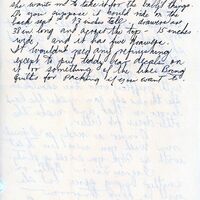 she wants me to take it for the baby's things.
Do you suppose it would ride on the
back seat - 43 inches tall, drawers are
33 in long and across the top - 15 inches
wide, and it has five drawers.
It wouldn't need any refinishing
except to put teddy bear decals on
it or something of the like. Bring
quilts for packing if you want to.